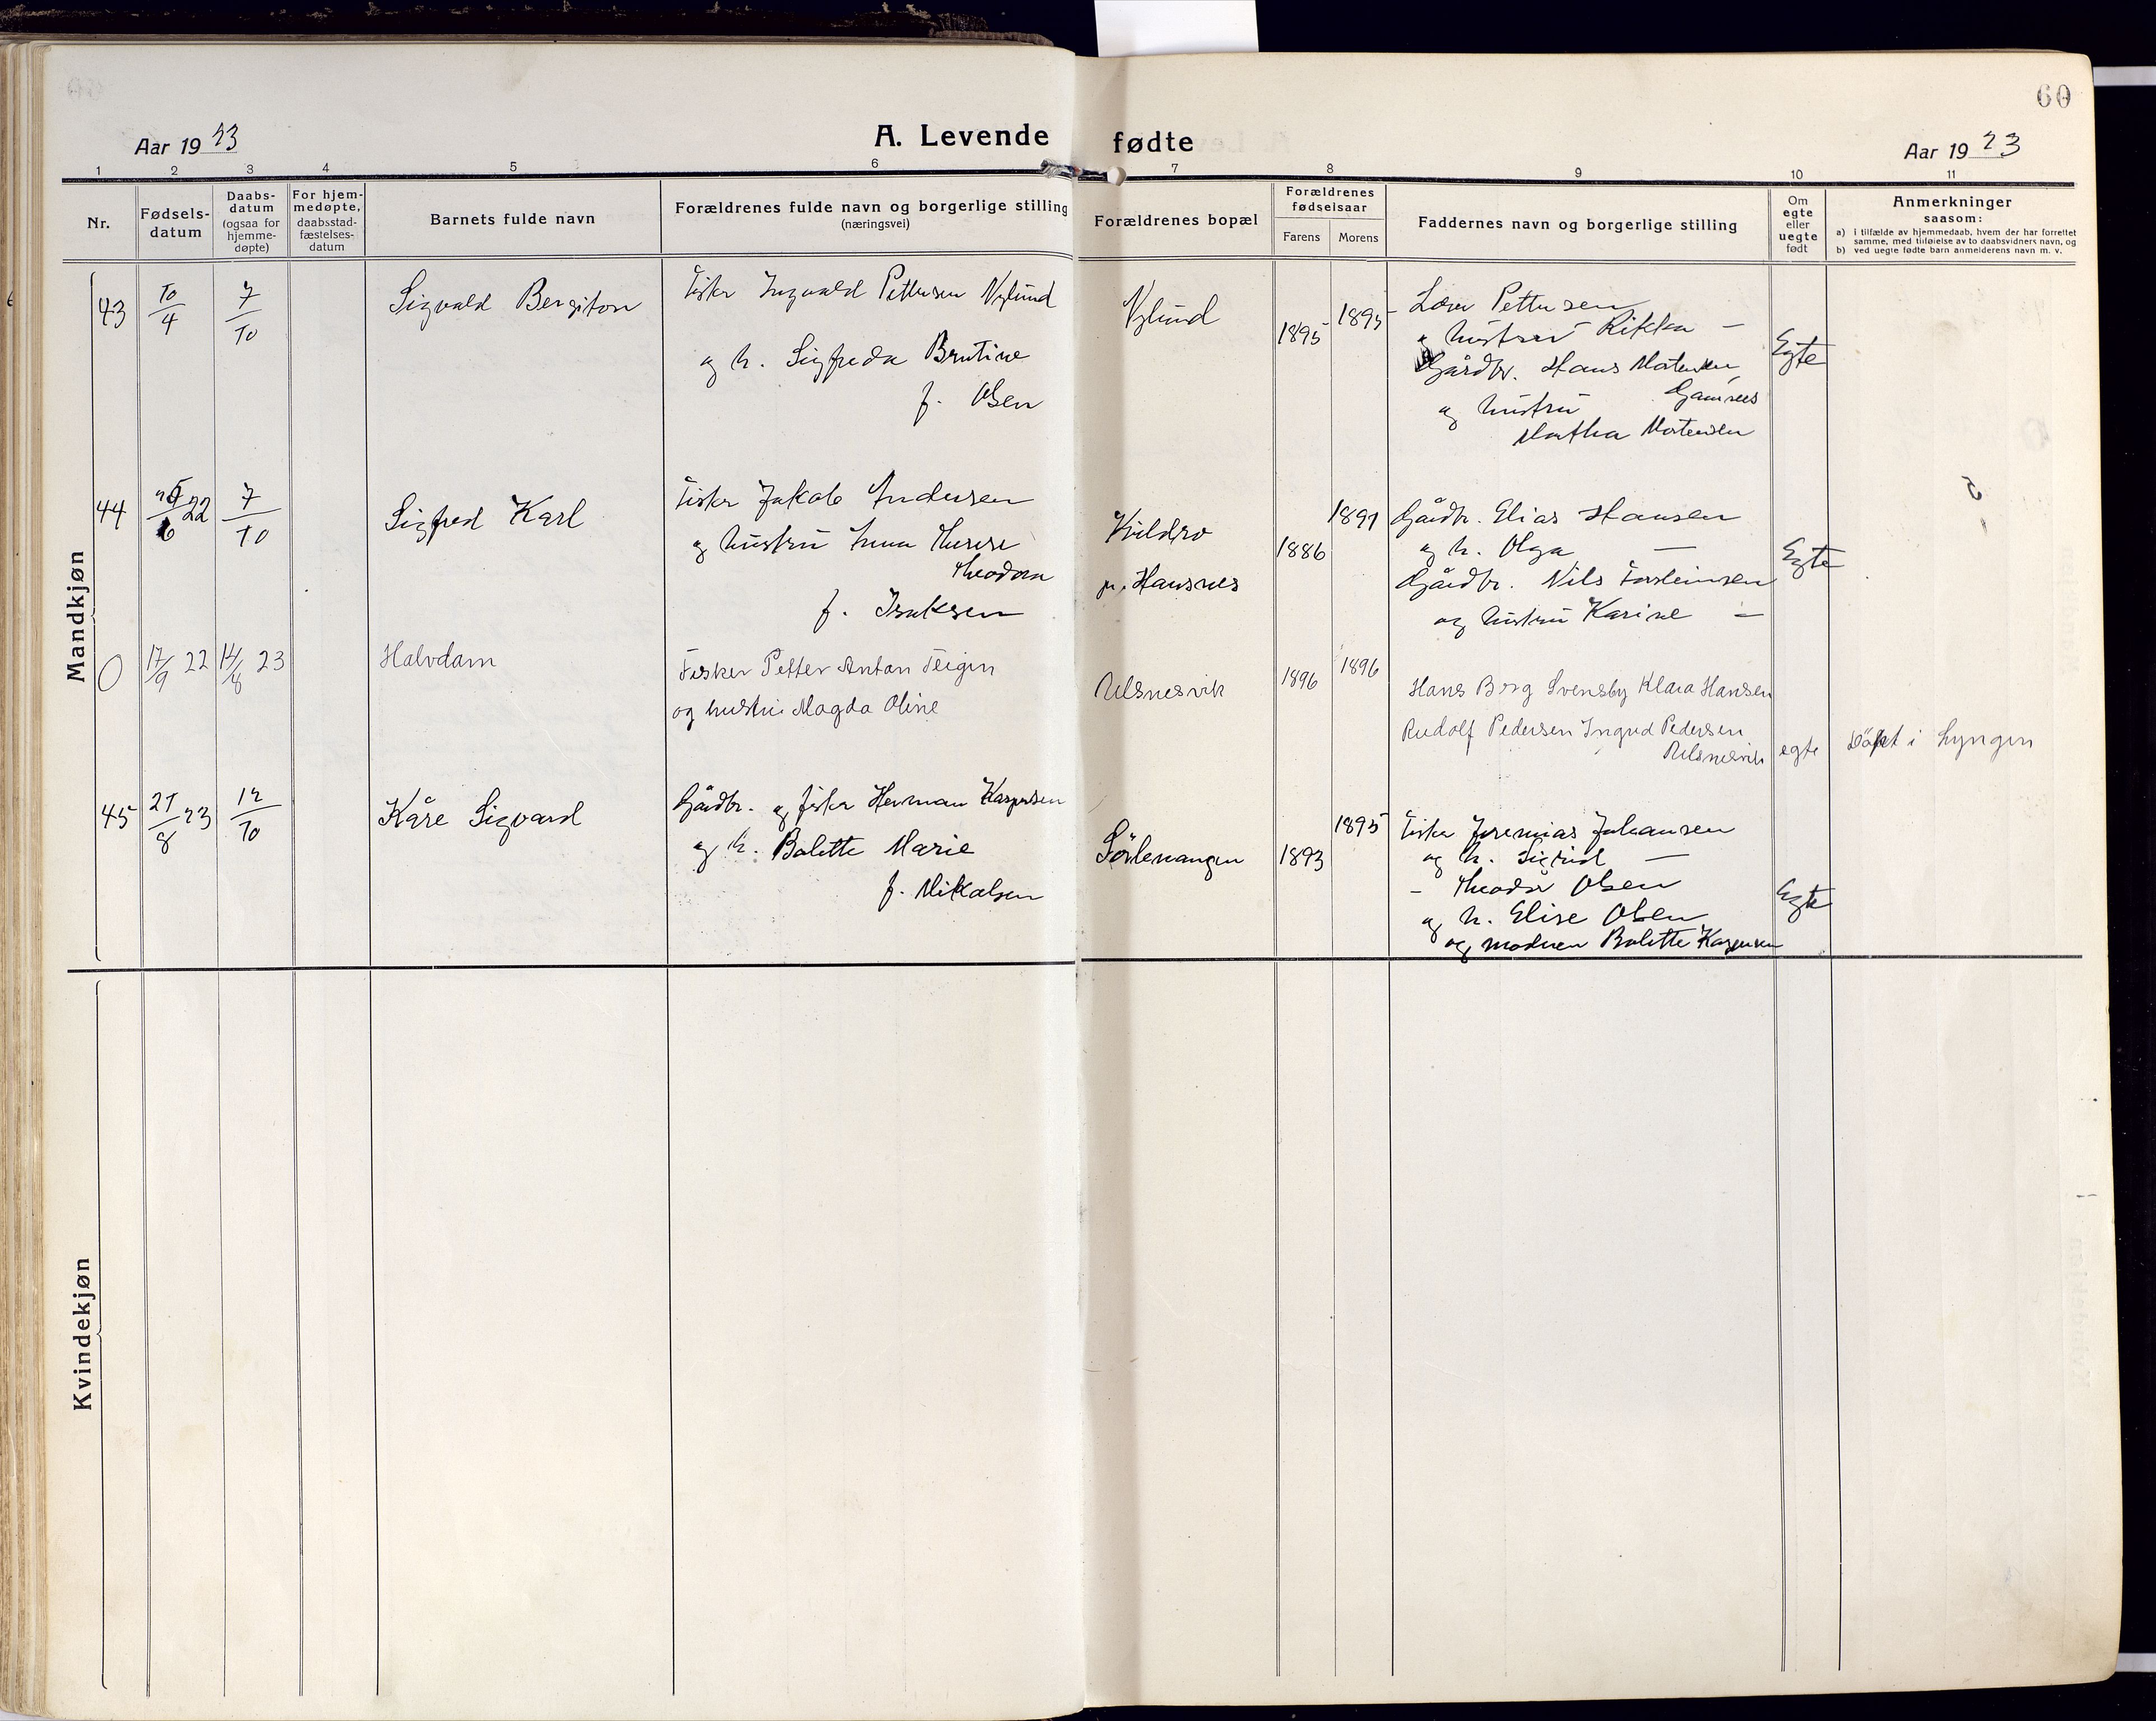 60
Aar 1923
A. Levende fødte
Aar 1923
1 2 3 4 5 6 7 8 9 10 11
Nr.
Fødsels-
datum
Daabs-
datum
(ogsaa for
hjemme-
døpte)
For hjem-
medøpte,
daabsstad-
fæstelses-
datum
Barnets fulde navn
Forældrenes fulde navn og borgerlige stilling
(næringsvei)
Forældrenes bopæl
Forældrenes
fødselsaar
Farens
Morens
Faddernes navn og borgerlige stilling
Om
egte
eller
uegte
født
Anmerkninger
saasom:
a) i tilfælde av hjemmedaab, hvem der har forrettet
samme, med tilføielse av to daabsvidners navn, og
b) ved uegte fødte barn anmelderens navn m. v.
Mandkjøn
43
10/4
7/10
Sigvald Bergiton
Fisker Ingvald Pettersen Nylund
og h. Sigfreda Brutine
f. Olsen
Nylund
1895
1895
Pettersen
hustru Rikka —
Gårdbr. Hans Mortensen
Gamnes
og hustru
Martha Mortensen
Egte
44
6 22
7/10
Sigfred Karl
Fisker Jakob Andersen
og hustru Anna Therese
Theodora
f. Isaksen
Kvildro
p. Hansnes
1886
1891
Gårdbr. Elias Hansen
og h. Olga —
Gårdbr. Nils Torsteinsen
og hustru Karine —
Egte
0
17/9 22
14/8 23
Halvdam
Fisker Petter Anton Teigen
og hustru Magda Oline
Ulsnesvik
1896
1896
Hans Berg Svensby Klara Hansen
Rudolf Pedersen Ingrid Pedersen
Ulsnesvik
egte
Döpt i Lyngen
45
21/8 23
12/10
Kåre Sigvard
Gårdbr. og fisker Herman Kaspersen
og h. Balette Marie
f. Mikalsen
Sörlenangen
1893
1895
Fisker Jeremias Johansen
og h. Sigrid —
- Theodor Olsen
og h. Elise Olsen
og moderen Balette Kaspersen
Egte
Kvindekjøn